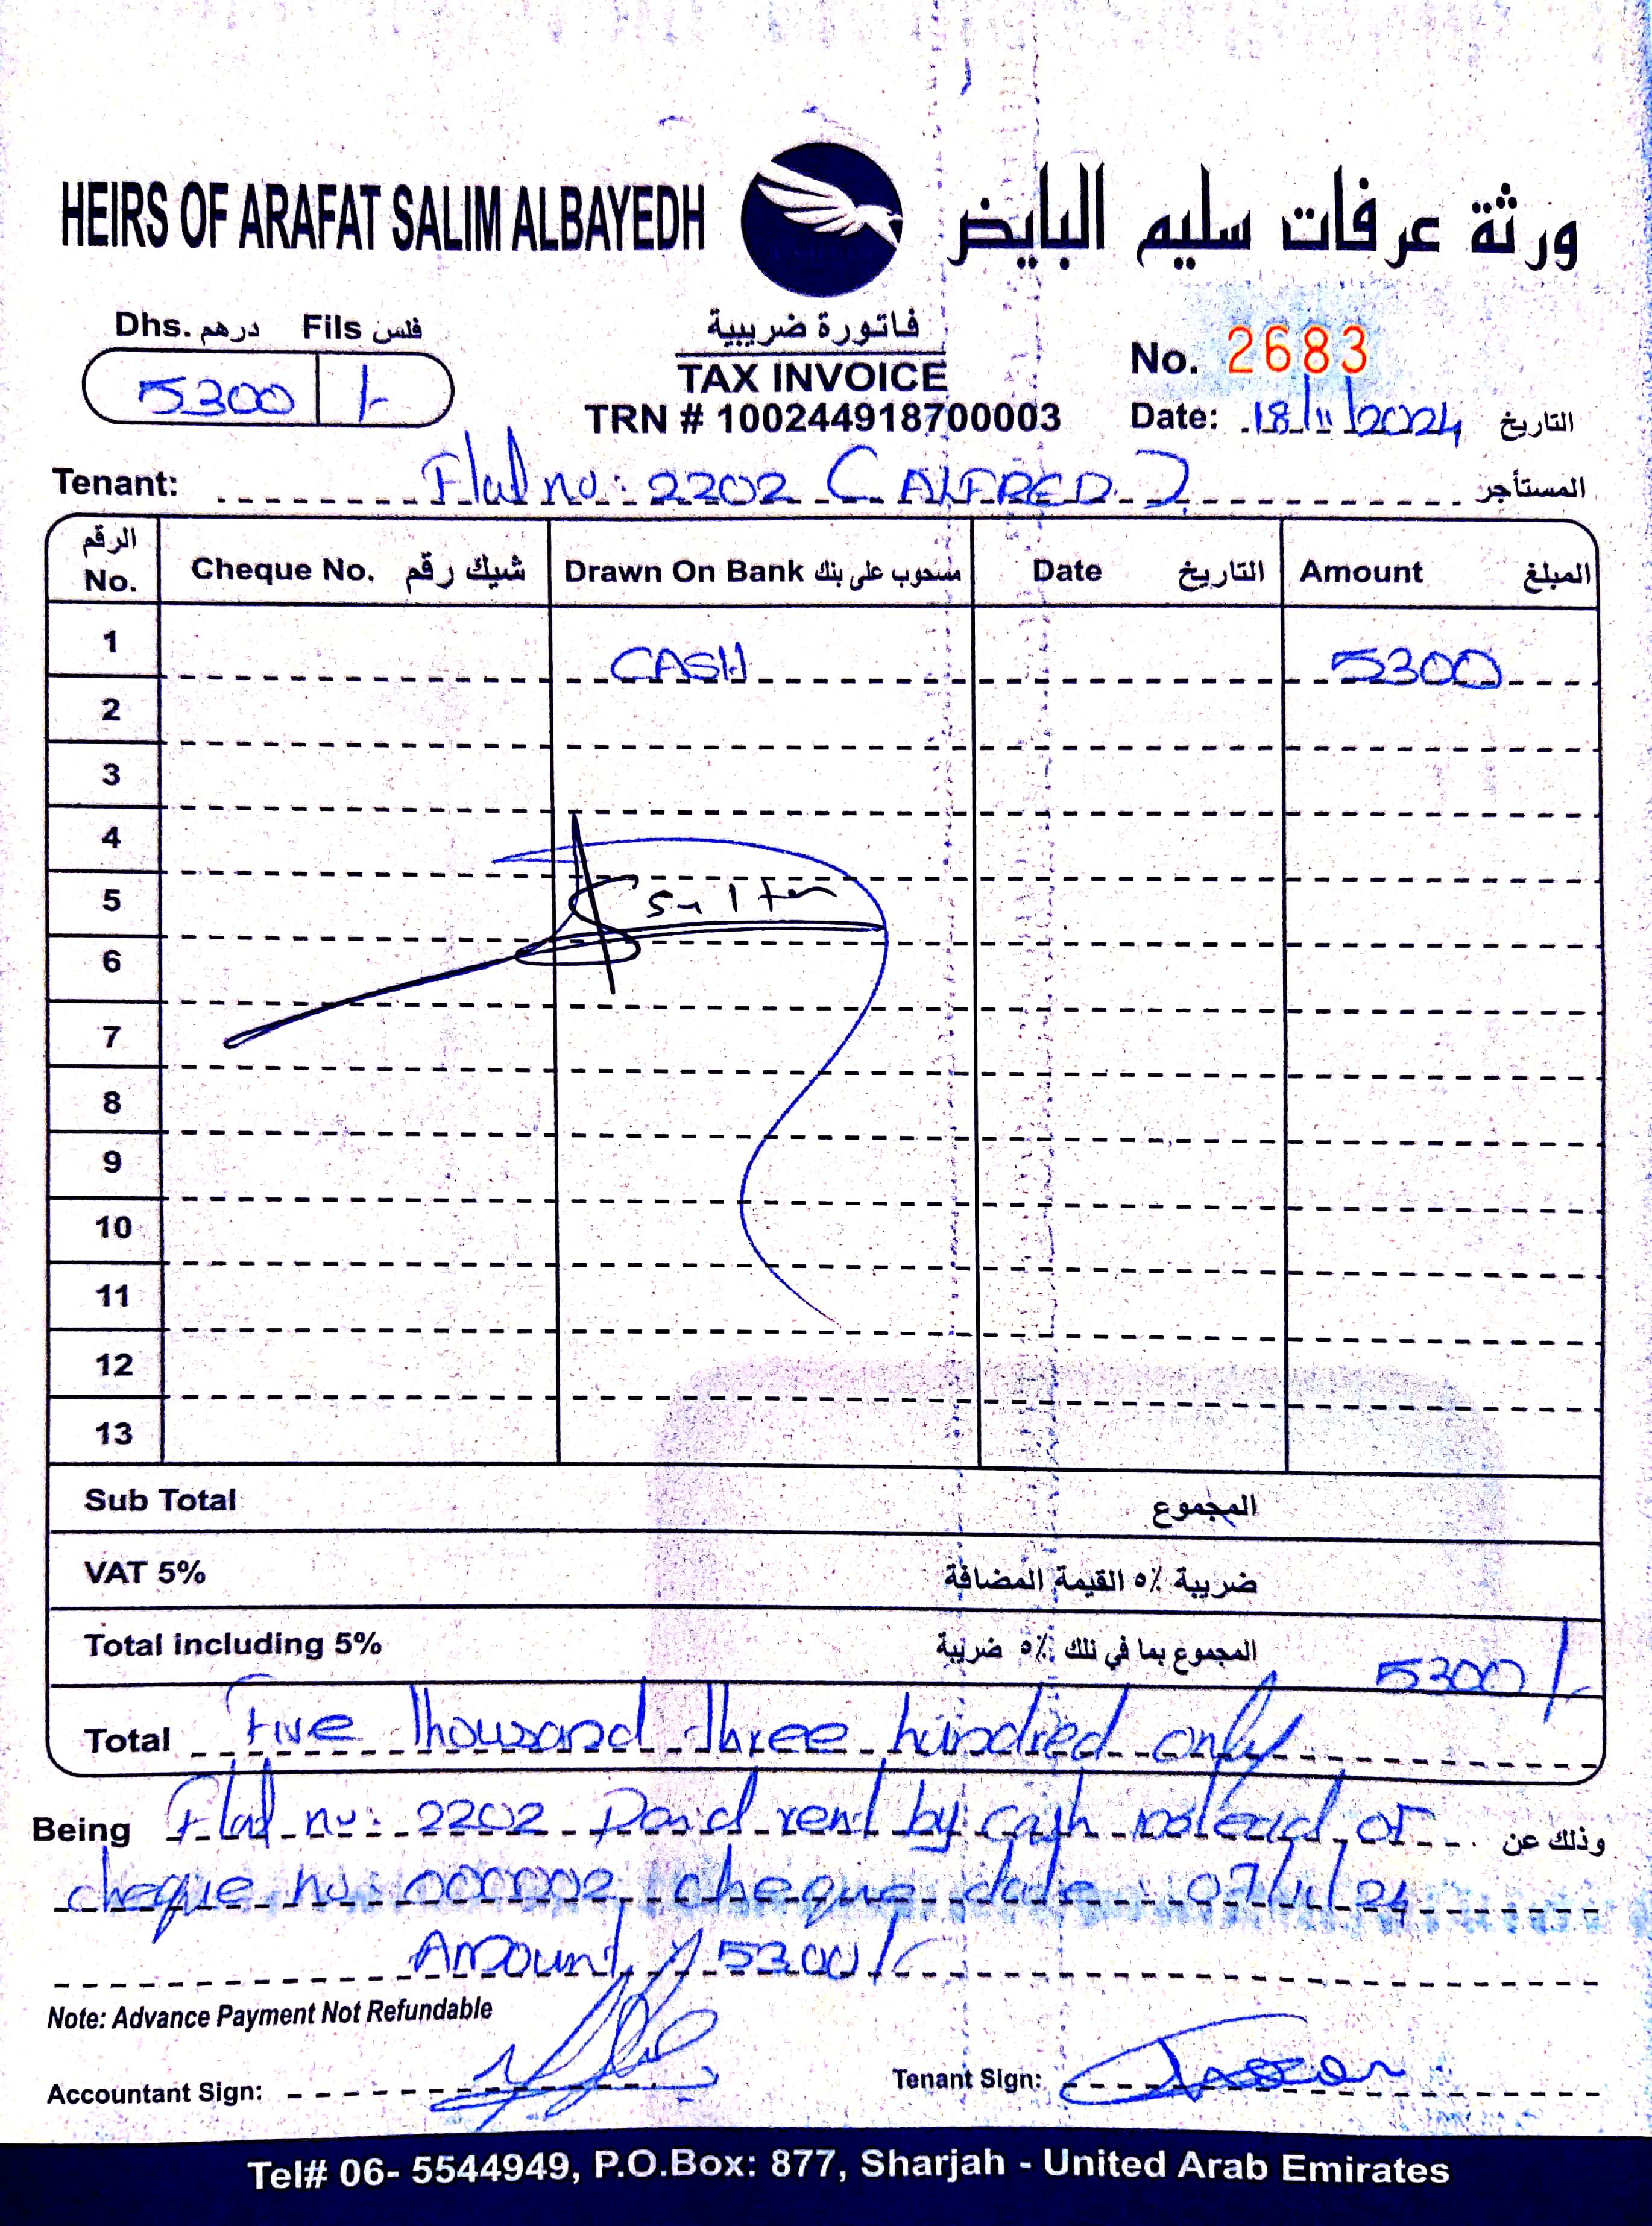 HEIRS OF ARAFAT SALIM ALBAYEDH ورثة عرفات سليم البايض
Dhs. درهم Fils فلس
5300 /-
فاتورة ضريبية
TAX INVOICE
TRN # 100244918700003
No. 2683
Date: 18/11/2024 التاريخ
Tenant: Flat no: 2202 (ALFRED) المستأجر
الرقم No. Cheque No. شيك رقم Drawn On Bank مسحوب على بنك Date التاريخ Amount المبلغ
1 CASH 5300
2
3
4
5
6
7
8
9
10
11
12
13
Sub Total المجموع
VAT 5% ضريبة ٥٪ القيمة المضافة
Total including 5% المجموع بما في ذلك ٥٪ ضريبة 5300/-
Total Five Thousand Three hundred only
Being Flat no: 2202 Paid rent by cash instead of وذلك عن
cheque no: 000002, cheque date: 07/11/24
Amount 5300/-
Note: Advance Payment Not Refundable
Accountant Sign: Tenant Sign:
Tel# 06- 5544949, P.O.Box: 877, Sharjah - United Arab Emirates